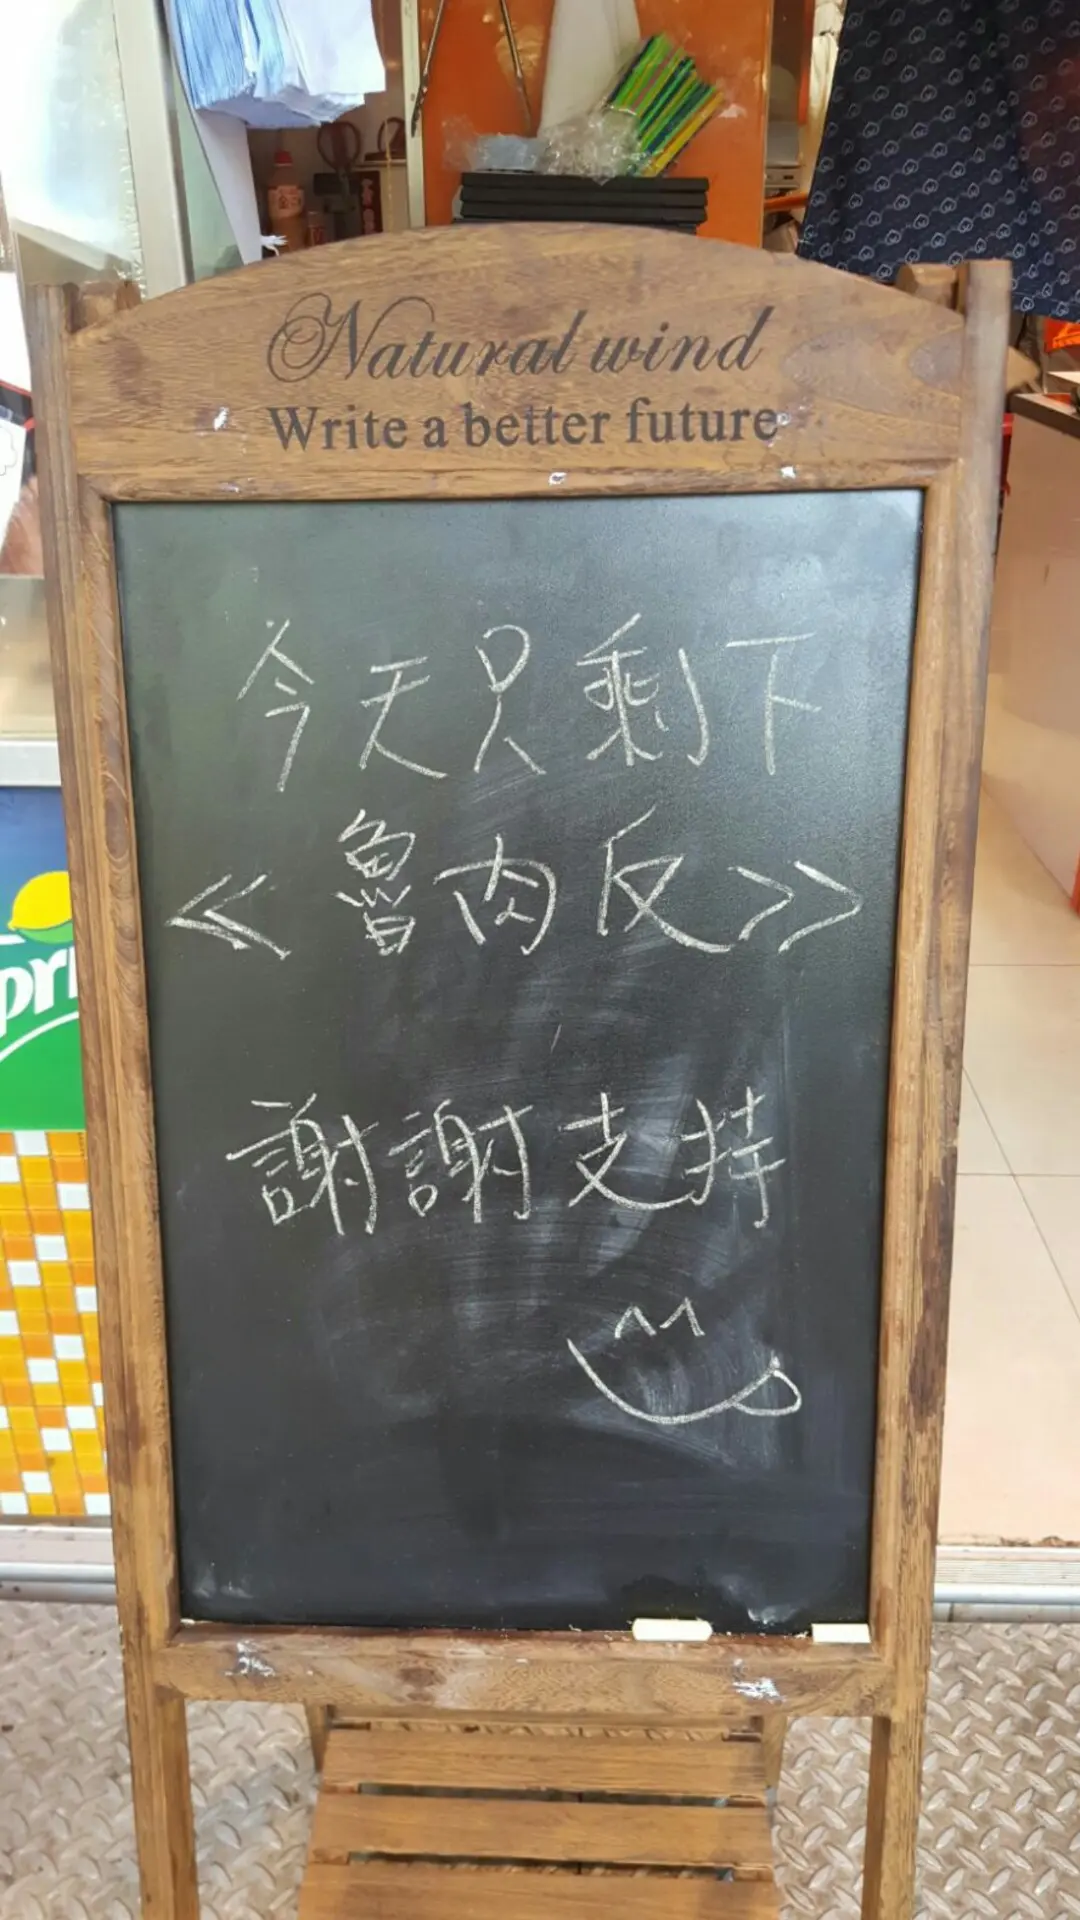 Natural wind
Write a better future
今天只剩下
<<魯肉反>>
謝謝支持